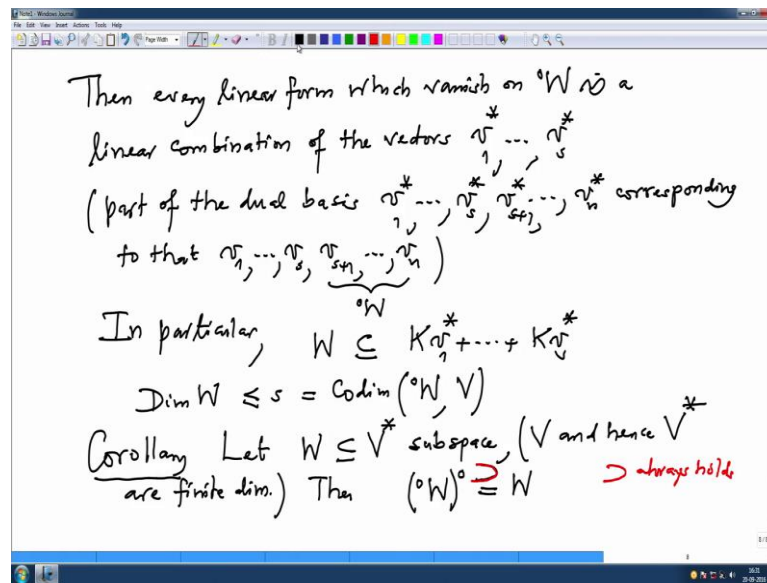 Note1 - Windows Journal
File Edit View Insert Actions Tools Help
Page Width
Then every linear form which vanish on °W is a
linear combination of the vectors v₁*, ..., vₛ*
(part of the dual basis v₁*, ..., vₛ*, vₛ₊₁*, ..., vₙ* corresponding
to that v₁, ..., vₛ, vₛ₊₁, ..., vₙ)
°W
In particular, W ⊆ Kv₁* + ... + Kvₛ*
Dim W ≤ s = Codim (°W, V)
Corollary Let W ≤ V* subspace, (V and hence V*
are finite dim.) Then (°W)° = W
⊃
⊃ always holds
8/8
8
16:31
20-09-2016